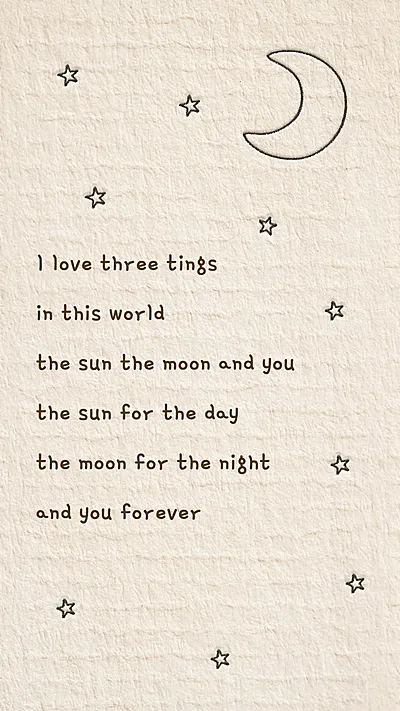 I love three tings
in this world
the sun the moon and you
the sun for the day
the moon for the night
and you forever